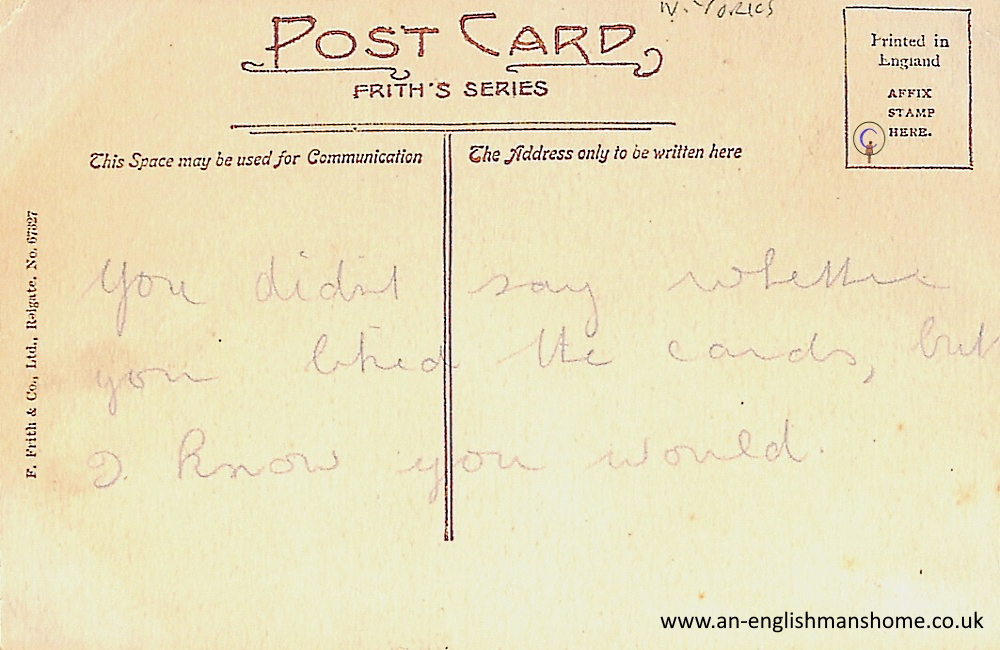 W. YORKS
POST CARD
FRITH'S SERIES
Printed in
England
AFFIX
STAMP
HERE.
This Space may be used for Communication
The Address only to be written here
F. Frith & Co., Ltd., Reigate. No. 67327
You didnt say whether
you liked the cards, but
I know you would.
www.an-englishmanshome.co.uk